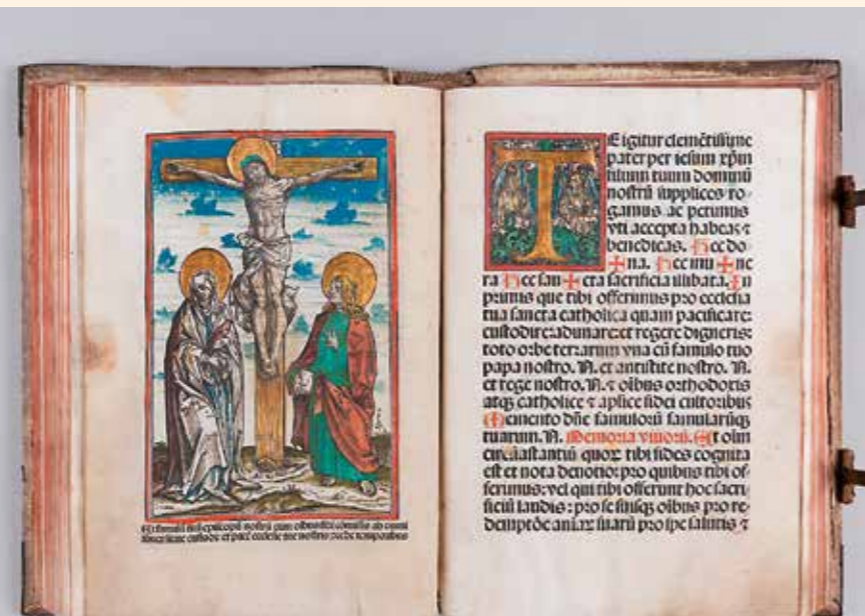 Et famulū tuū episcopū nostrū cum oībus sibi cōmissis ab omni
adversitate custodi: et pacē ecclesie tue nostris cōcede temporibus
TE igitur clemētissime
pater per iesum xp̄m
filium tuum dominū
nostrū supplices ro-
gamus ac petimus
vti accepta habeas ⁊
benedicas. Hec do
✠ na. Hec mu ✠ ne
ra Hec san ✠ cta sacrificia illibata. In
primis que tibi offerimus pro ecclesia
tua sancta catholica quam pacificare:
custodire: adunare: et regere digneris:
toto orbe terrarum vna cū famulo tuo
papa nostro. N. et antistite nostro. N.
et rege nostro. N. ⁊ oībus orthodoxis
atqꝫ catholice ⁊ aplice fidei cultoribus
Memento dn̄e famulorū famularūqꝫ
tuarum. N. Memoria viuorū. Et oīm
circūastantiū quoꝝ tibi fides cognita
est et nota deuotio: pro quibus tibi of-
ferimus: vel qui tibi offerunt hoc sacri-
ficiū laudis: pro se suisqꝫ oībus pro re-
demptōe aīaꝝ suarū pro spe salutis ⁊